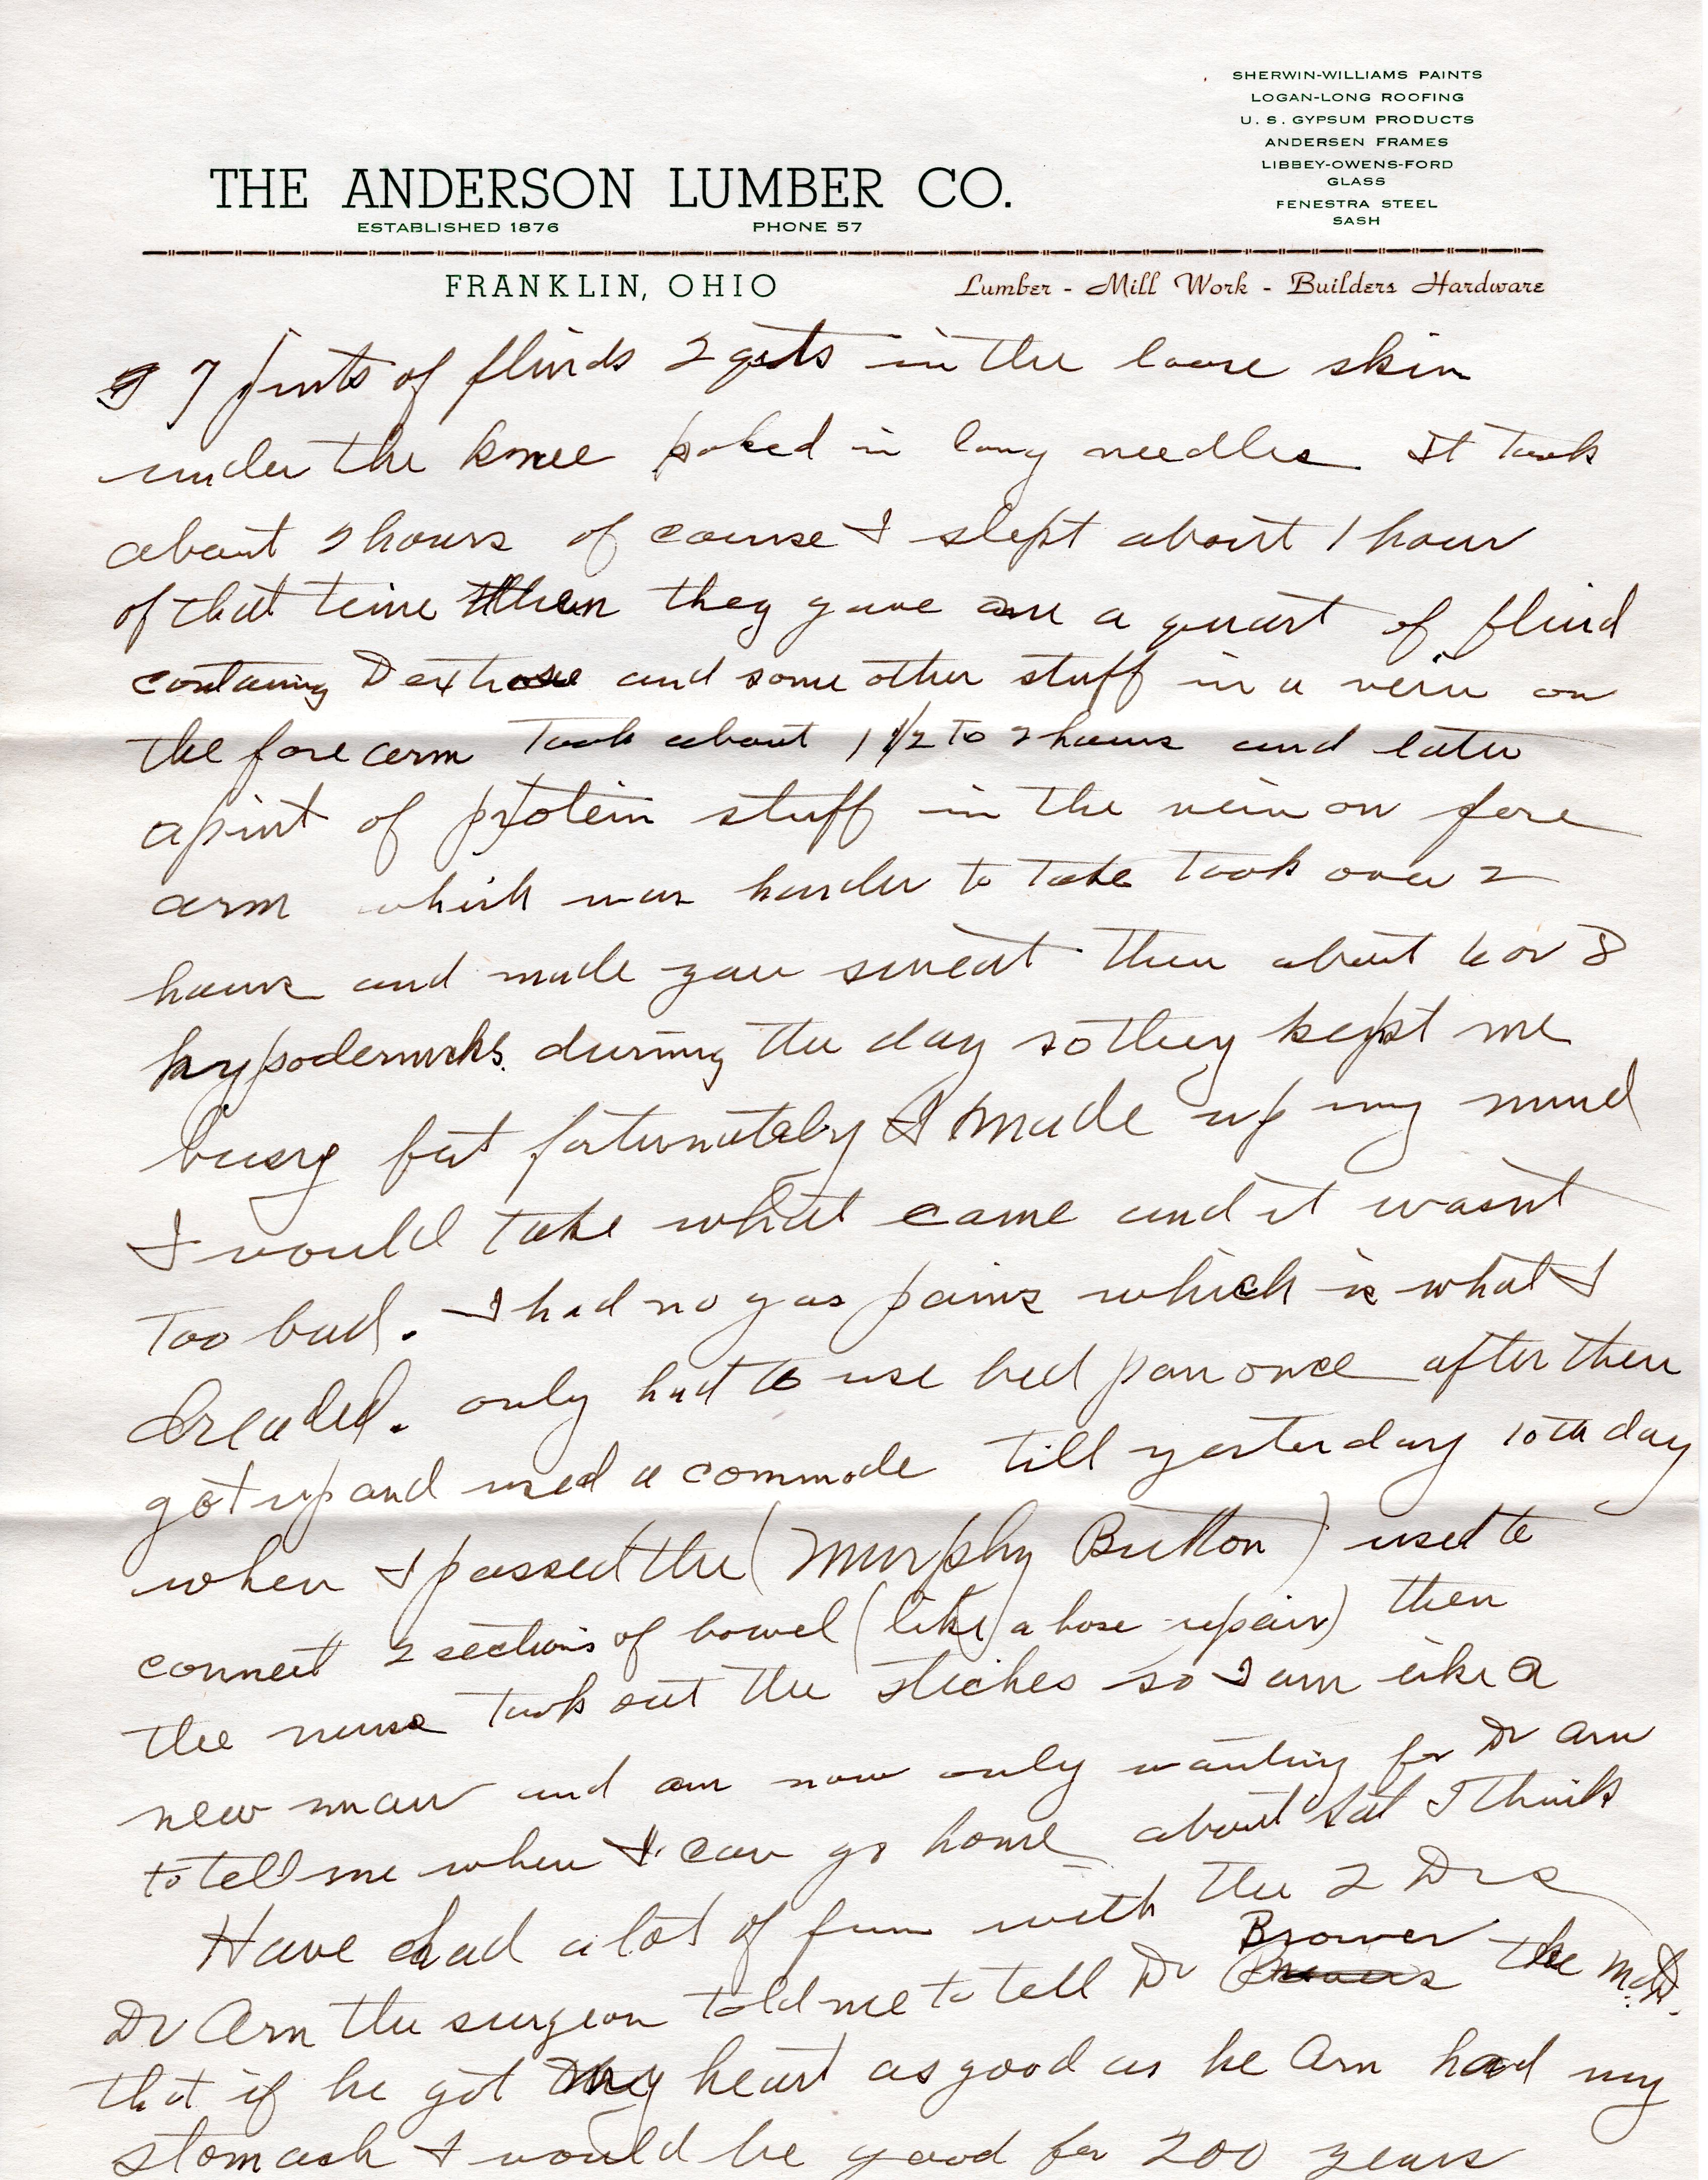 SHERWIN-WILLIAMS PAINTS
LOGAN-LONG ROOFING
U. S. GYPSUM PRODUCTS
ANDERSEN FRAMES
LIBBEY-OWENS-FORD
GLASS
FENESTRA STEEL
SASH
THE ANDERSON LUMBER CO.
ESTABLISHED 1876 PHONE 57
FRANKLIN, OHIO Lumber - Mill Work - Builders Hardware
7 pints of fluids 2 qts in the loose skin
under the knee poked in long needles. It took
about 2 hours of course I slept about 1 hour
of that time then they gave me a quart of fluid
containing Dextrose and some other stuff in a vein on
the fore arm Took about 1 1/2 to 2 hours and later
a pint of protein stuff in the vein on fore
arm which was harder to take took over 2
hours and made you sweat then about 6 or 8
hypodermicks during the day so they kept me
busy but fortunately I made up my mind
I would take what came and it wasnt
too bad. I had no gas pains which is what I
dreaded. only had to use bed pan once after then
got up and used a commode till yesterday 10th day
when I passed the (Murphy Button) used to
connect 2 sections of bowel (like a hose repair) then
the nurse took out the stiches so I am like a
new man and am now only waiting for Dr Arn
to tell me when I can go home about Sat I think
Have had a lot of fun with the 2 Drs
Dr Arn the surgeon told me to tell Dr Brower the M.D.
that if he got my heart as good as he Arn had my
stomach I would be good for 200 years